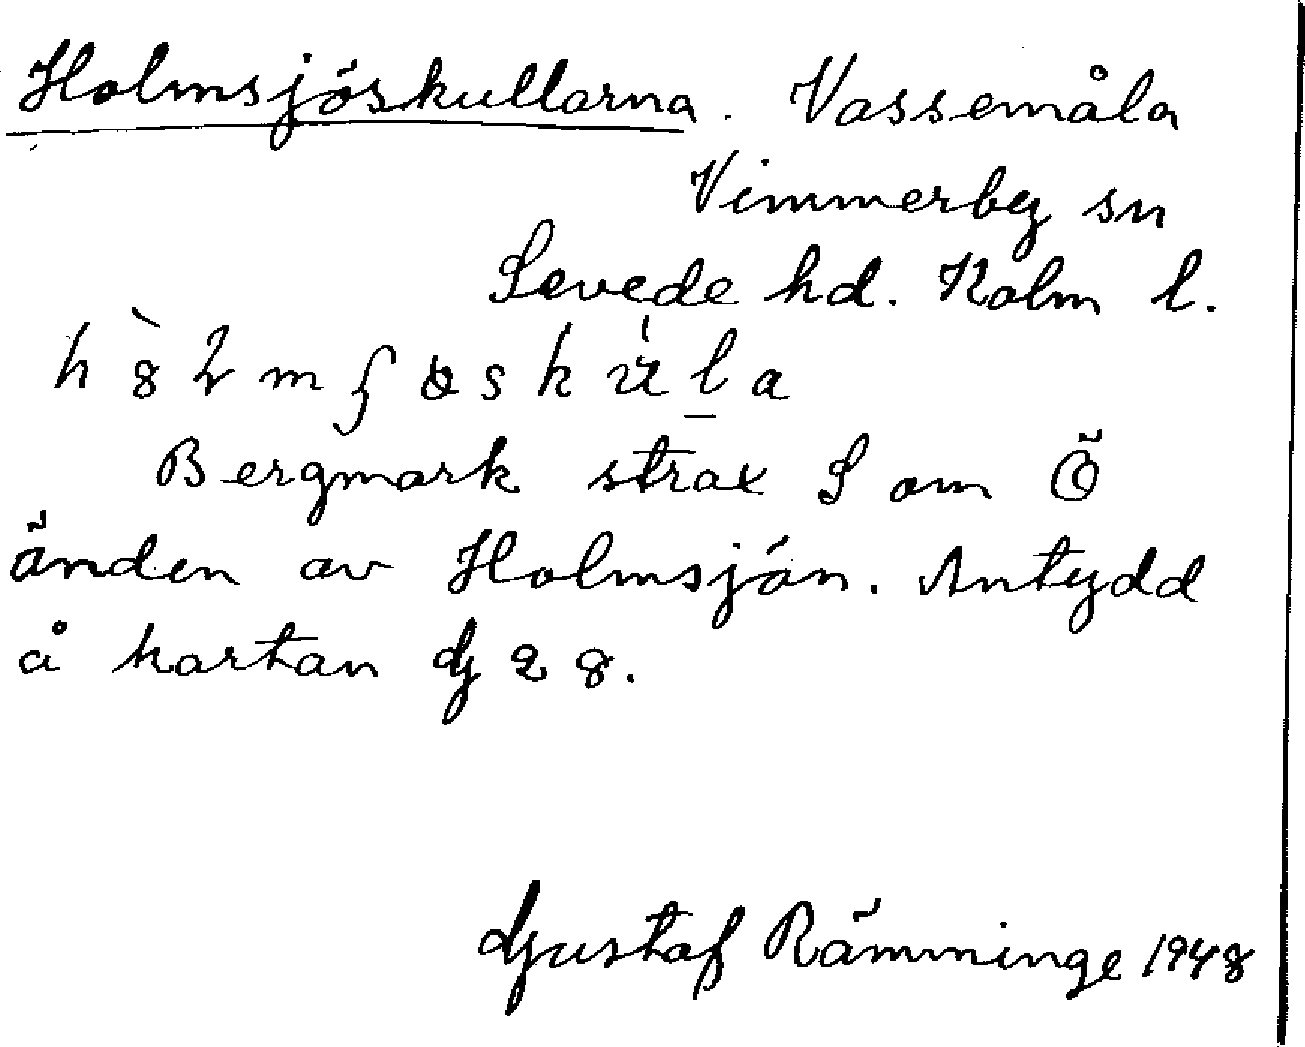 Holmsjöskullarna. Vassemåla
Vimmerby sn
Sevede hd. Kalm l.
Bergmark strax S om Ö
änden av Holmsjön. Antydd
å kartan G 28.
Gustaf Rämminge 1948